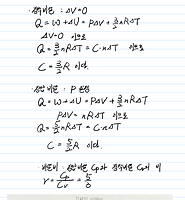 · 정적비열 : ΔV=0
Q = W + ΔU = PΔV + 3/2 nRΔT
ΔV=0 이므로
Q = 3/2 nRΔT = C·nΔT 이므로
C = 3/2 R 이다.
· 정압비열 : P 일정
Q = W + ΔU = PΔV + 3/2 nRΔT
PΔV = nRΔT 이므로
Q = 5/2 nRΔT = C·nΔT
C = 5/2 R 이다.
· 비열비 : 정압비열 Cp와 정적비열 Cv의 비
γ = Cp/Cv = 5/3